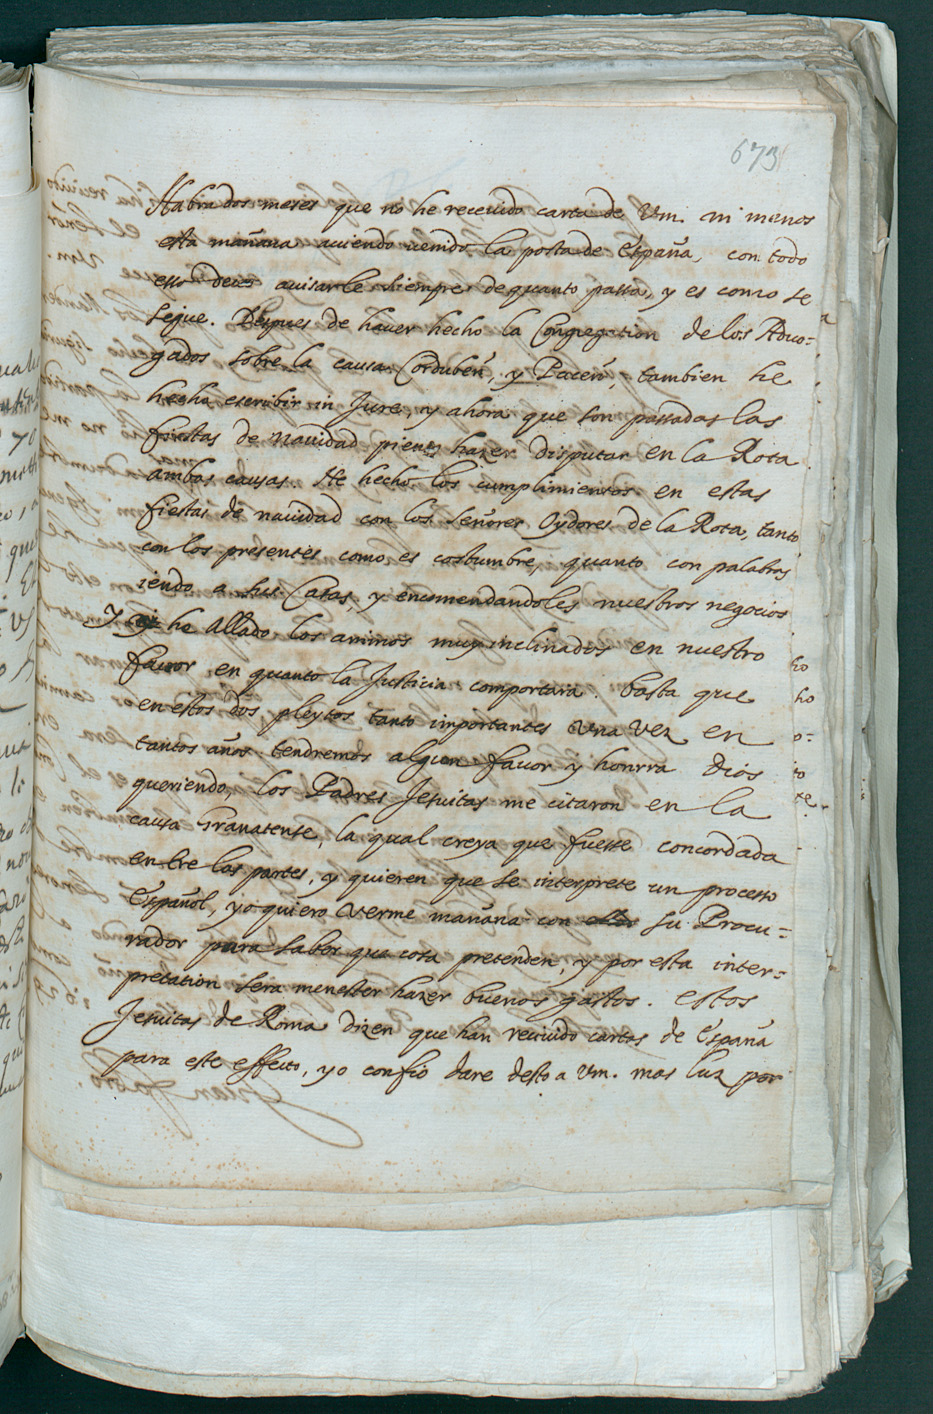 673
Habra dos meses que no he receuido carta de Vm. ni menos
esta mañana auiendo uenido la posta de España, con todo
esso deuo auisarle siempre de quanto passa, y es como se
sigue. Despues de hauer hecho la Congregation de los Aduo=
gados sobre la causa Cordubeñ, y Paceñ, tambien he
hecho escribir in Jure, y ahora que son passadas las
fiestas de Nauidad pienso hazer disputar en la Rota
ambas causas. He hecho los cumplimientos en estas
fiestas de nauidad con los Señores Oydores de la Rota, tanto
con los presentes como es costumbre, quanto con palabras
iendo a sus Casas, y encomendandoles nuestros negocios
y he allado los animos muy inclinados en nuestro
fauor en quanto la Justicia comportara. basta que
en estos dos pleytos tanto importantes una vez en
tantos años tendremos algun fauor y honrra Dios
queriendo, los Padres Jesuitas me citaron en la
causa Granatense, la qual creya que fuesse concordada
entre las partes, y quieren que se interprete un processo
Español, yo quiero verme mañana con su Procu=
rador para saber que cosa pretenden, y por esta inter=
pretation sera menester hazer buenos gastos. estos
Jesuitas de Roma dizen que han receuido cartas de España
para este effecto, yo confio dare desto a Vm. mas luz por